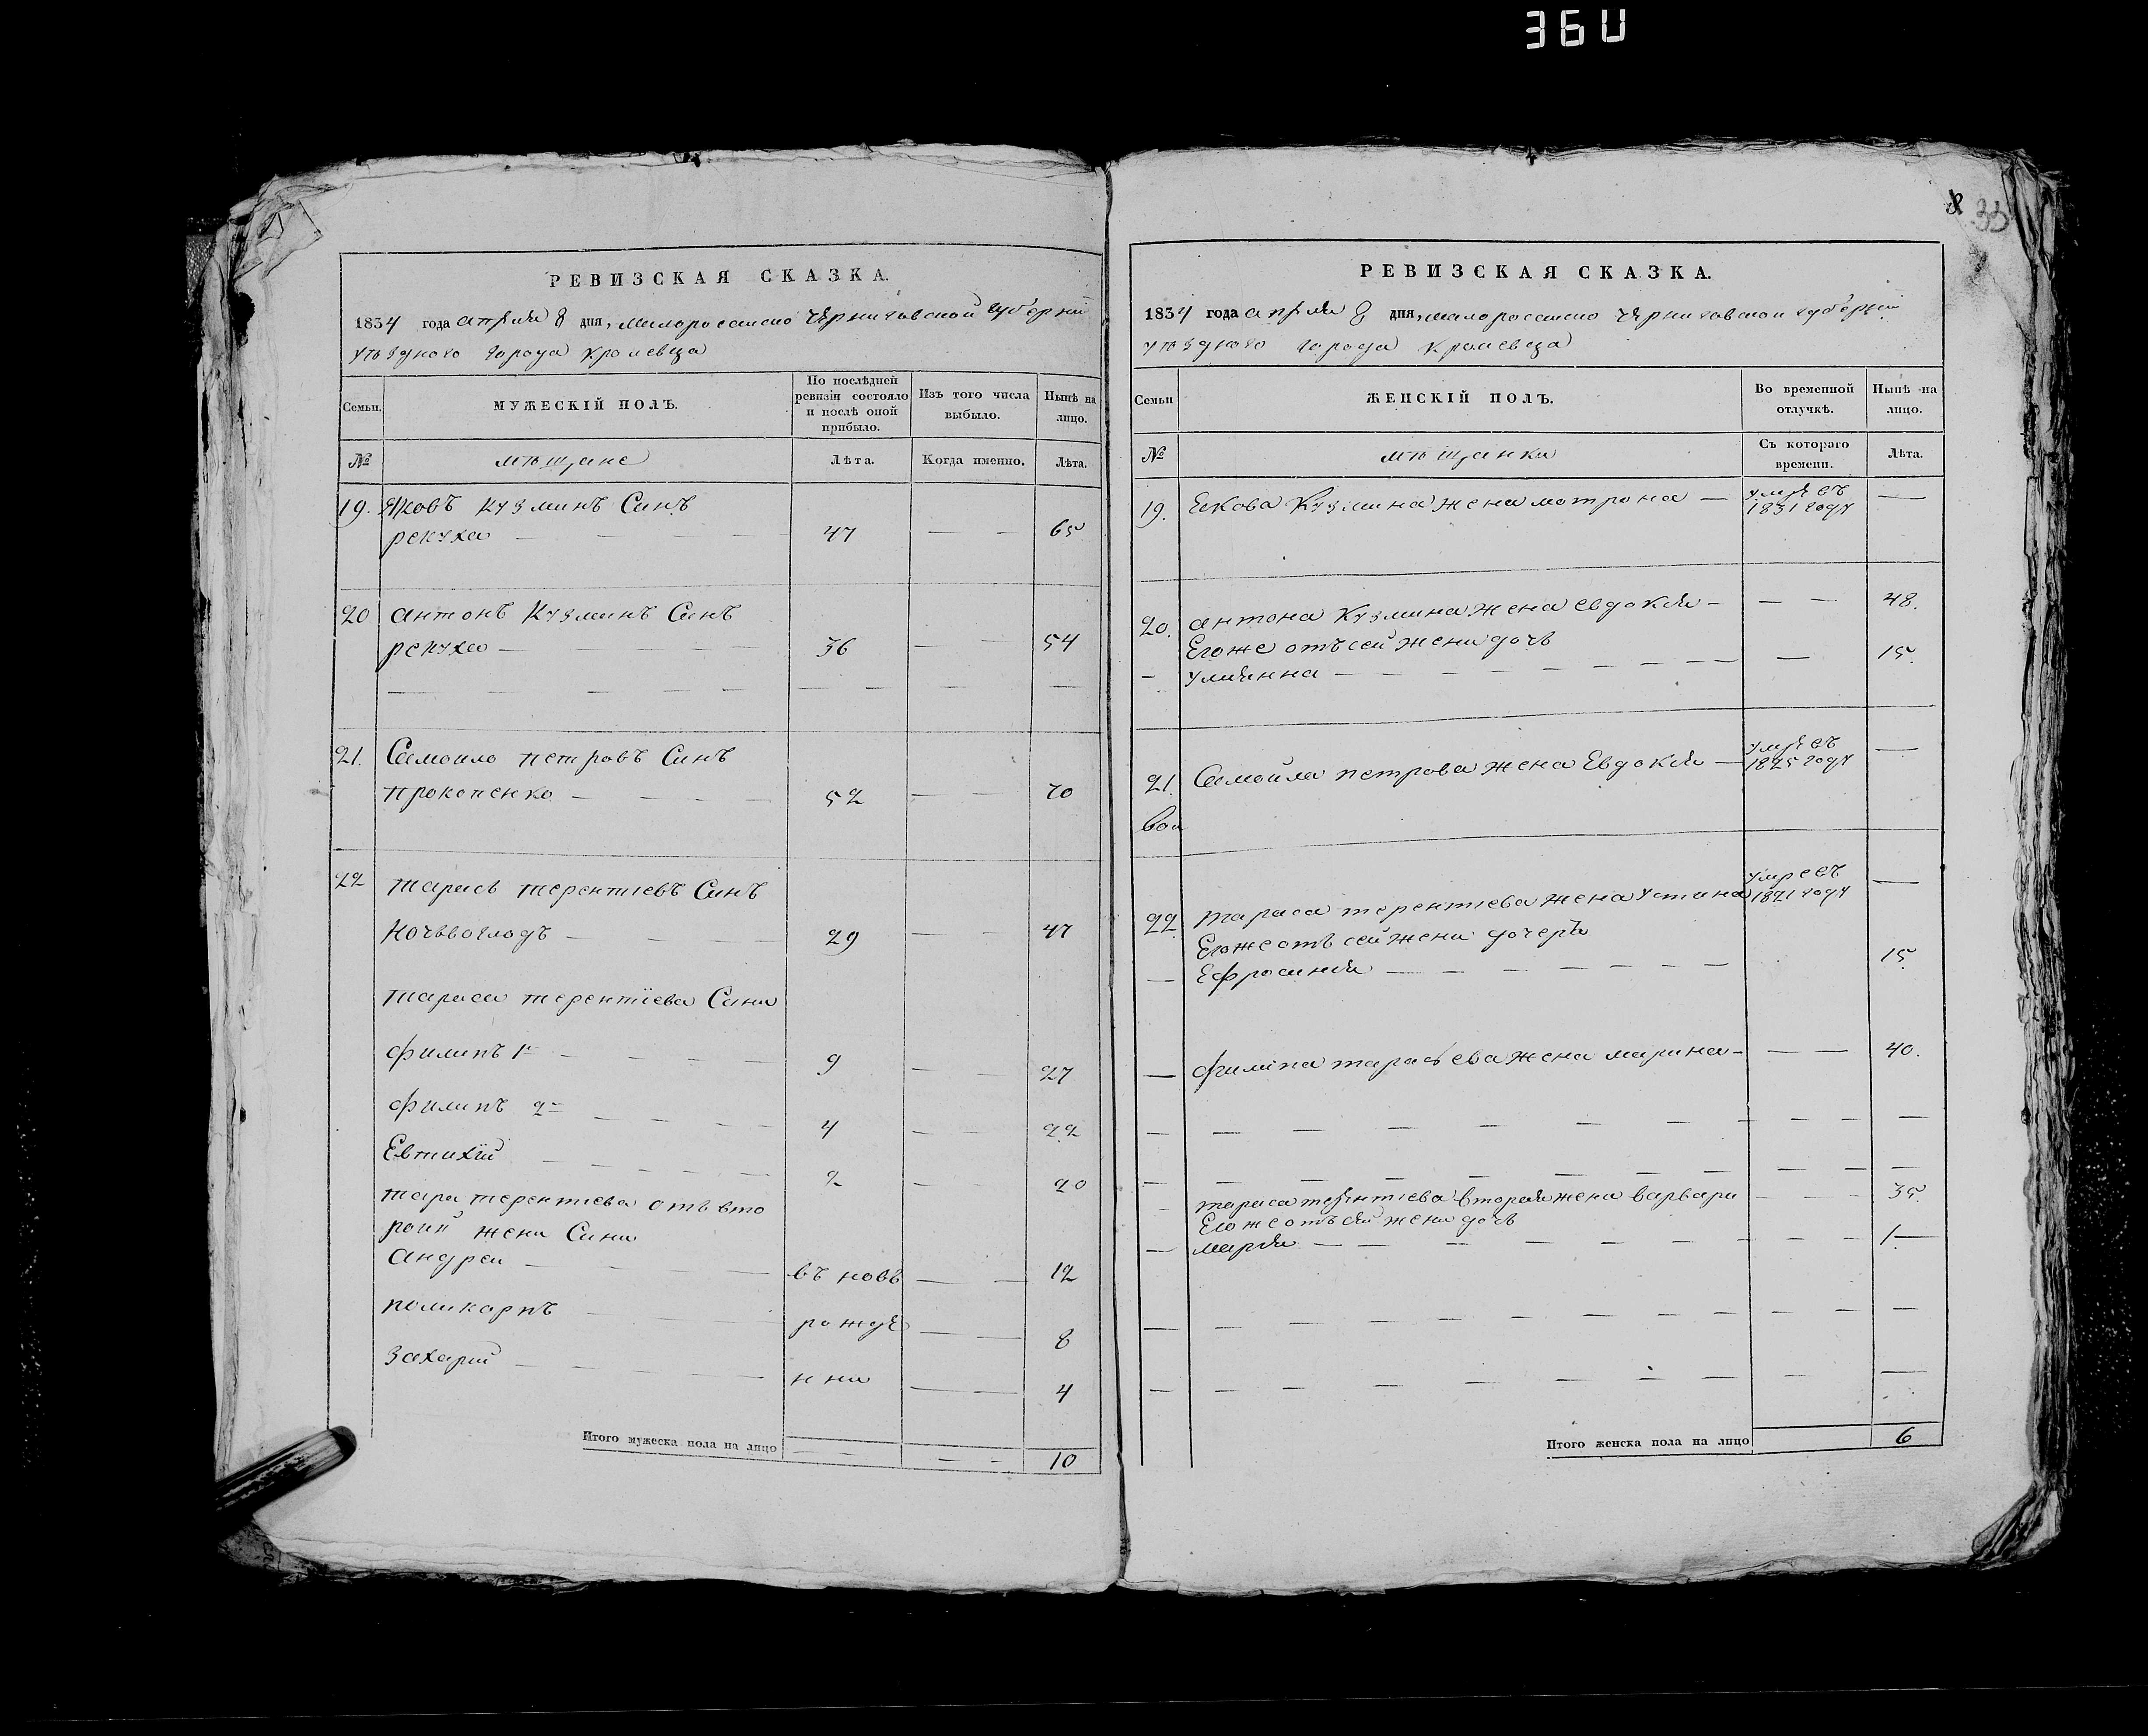 360
33
РЕВИЗСКАЯ СКАЗКА.
1834 года апреля 8 дня, Малоросийско Черниговской губернии
уѣздного города Кролевца
Семьи.
МУЖЕСКІЙ ПОЛЪ.
По послѣдней ревизіи состояло и послѣ оной прибыло.
Изъ того числа выбыло.
Нынѣ на лицо.
№
мѣщане
Лѣта.
Когда именно.
Лѣта.
19. Яковъ Кузминъ Синъ
рекуха — 47 — 65
20 антонъ Кузминъ Синъ
рекуха — 36 — 54
21. Самоило петровъ Синъ
прокопенко — 52 — 70
22 тарасъ терентиевъ Синъ
29 — 47
тараса терентиева Сини
филипъ 1й — 9 — 27
филипъ 2й — 4 — 22
Евтихий — 2 — 20
тара терентиева отъ вто
рой жени Сини
андреи — въ новь — 12
поликарпъ — рожде — 8
захарий — нни — 4
Итого мужеска пола на лицо — — 10
РЕВИЗСКАЯ СКАЗКА.
1834 года апреля 8 дня, малоросийско Черниговской губернии
уѣздного города Кролевца
Семьи
ЖЕНСКІЙ ПОЛЪ.
Во временной отлучкѣ.
Нынѣ на лицо.
№
мѣщанки
Съ котораго времени.
Лѣта.
19. Екова Кузмина жена мотрона — умре въ 1831 году —
20. антона Кузмина жена евдокия — — 48.
Егоже отъ сей жени дочъ
улиянна — — 15.
21. Самойла петрова жена Евдокия — умре въ 1825 году —
22. тараса терентиева жена устина умре въ 1821 году —
Егоже отъ сей жени дочеръ
Ефросиния — 15
филипа тарасьева жена марина — — 40.
тараса терентиева вторая жена варвара — 35.
Егоже отъ сей жени дочъ
мария — — 1
Итого женска пола на лицо 6